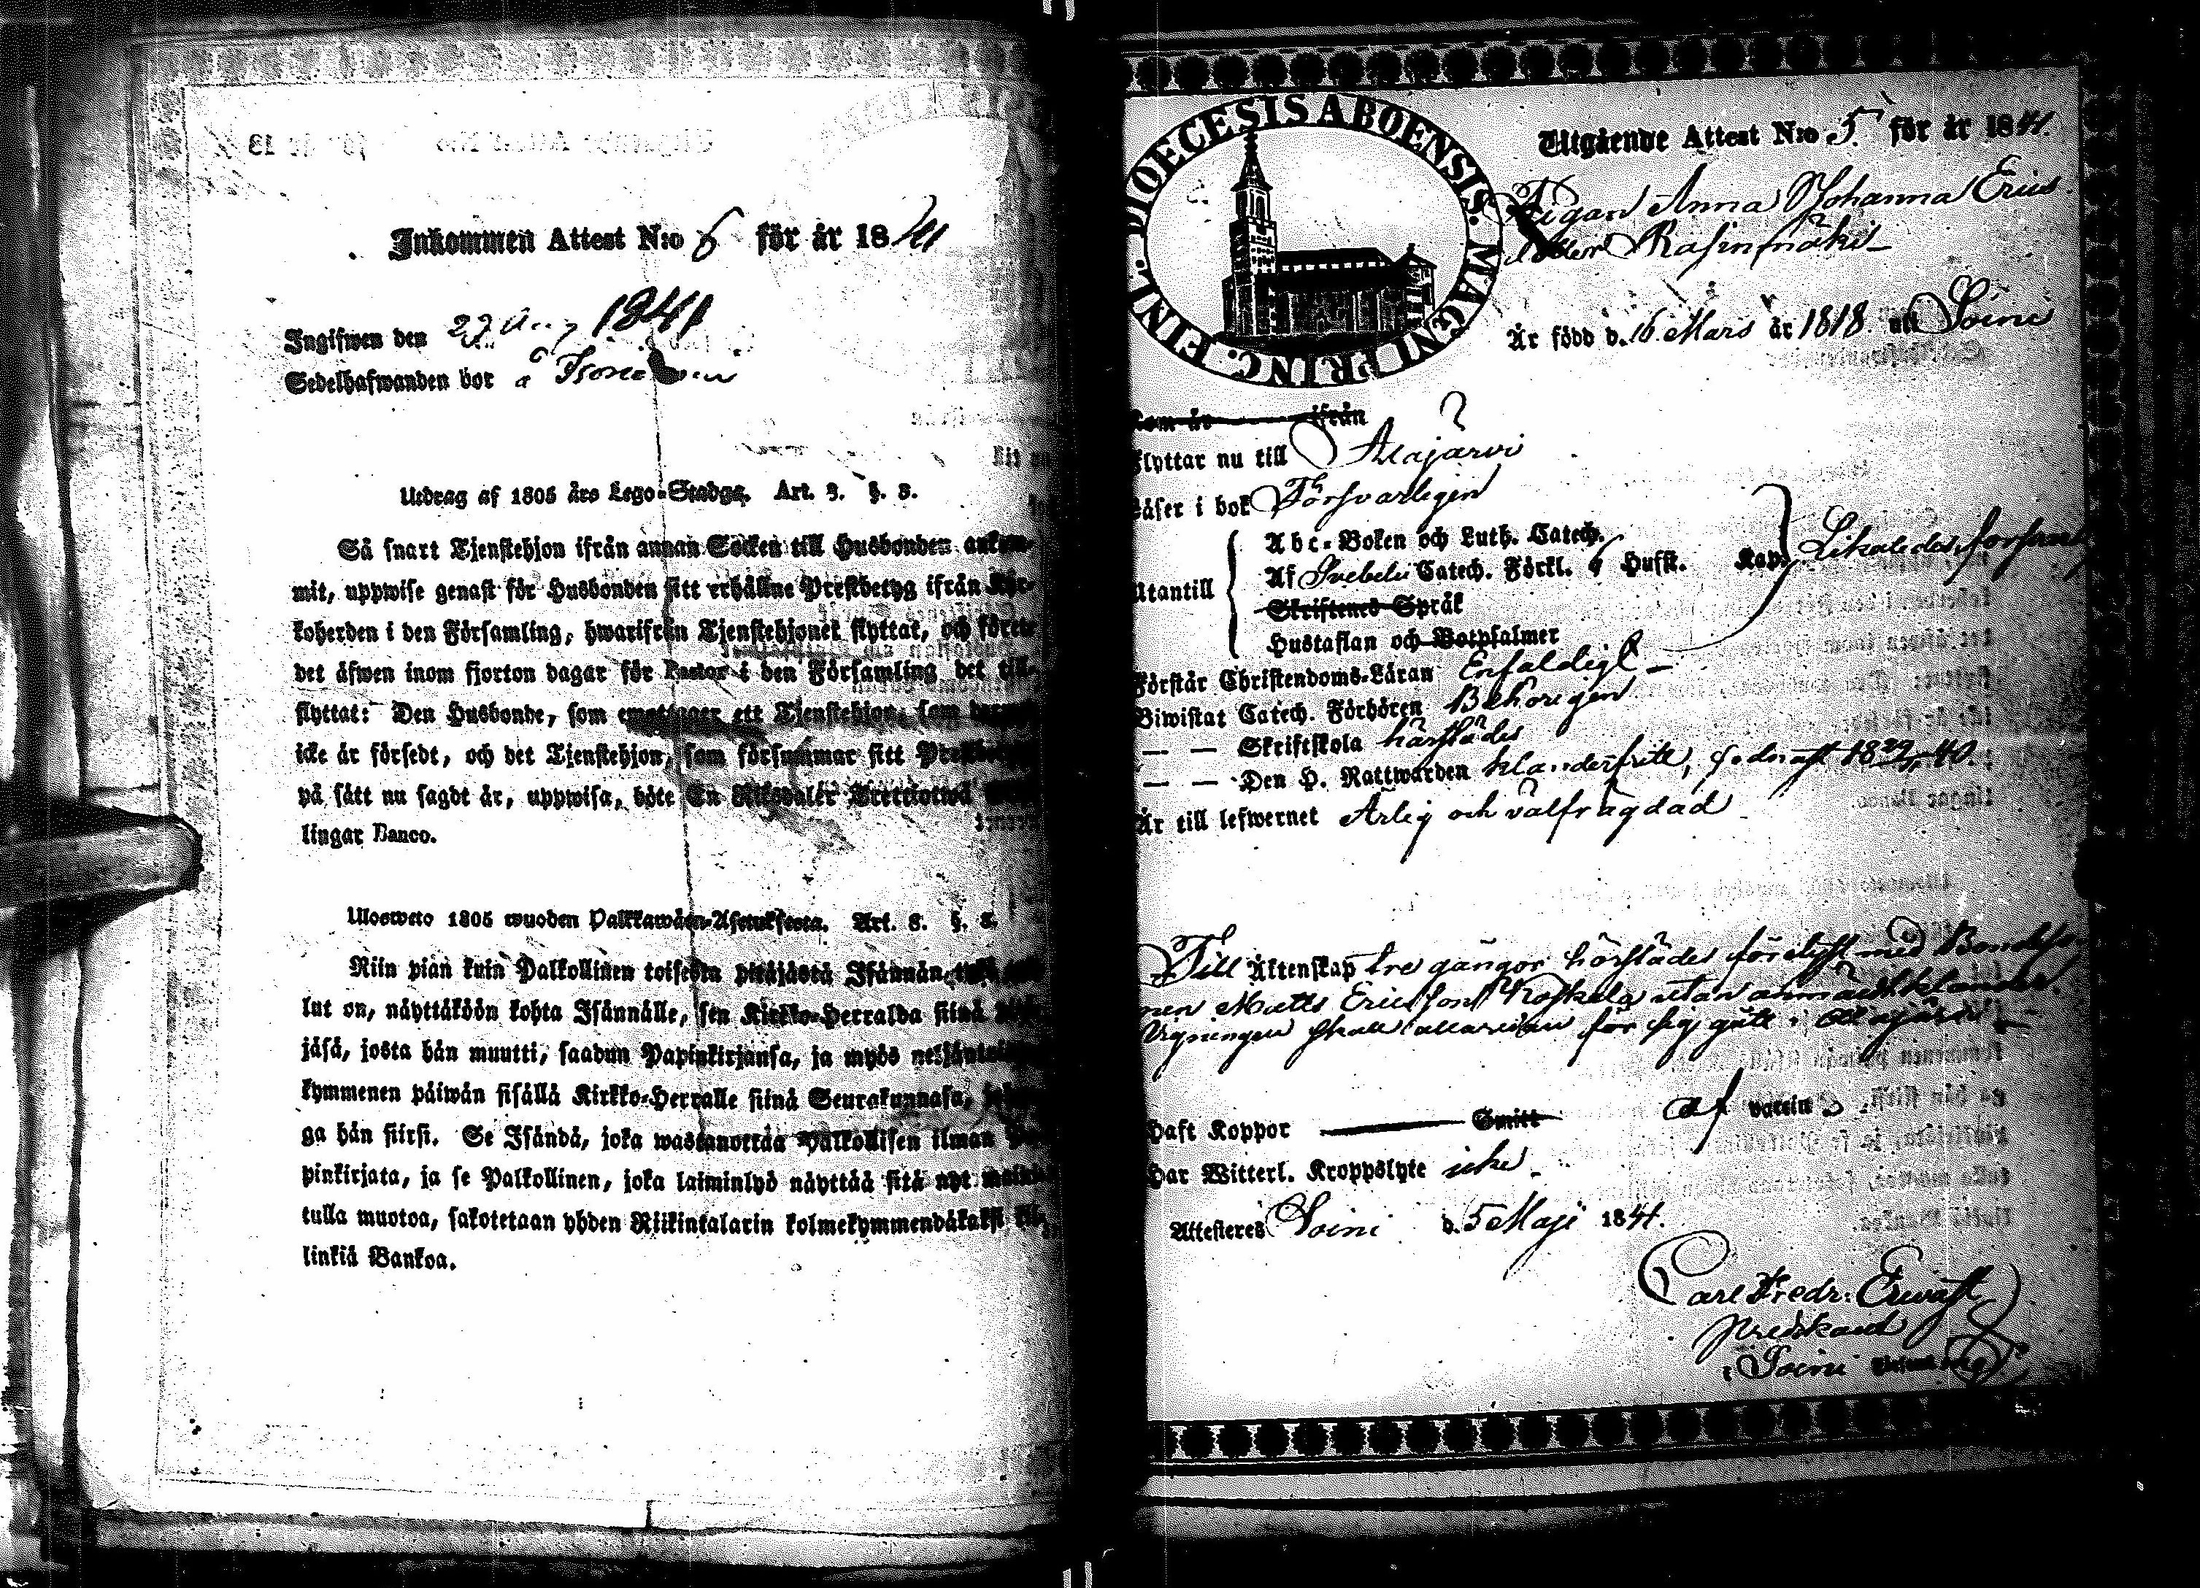 Inkommen Attest N:o 6 för år 1841
Ingifwen den 27 Aug 1841
Sedelhafwanden bor å
Utdrag af 1805 års Lego-Stadga. Art. 3. §. 8.
Så snart Tjenstehjon ifrån annan Socken till Husbonden ankom-
mit, uppwise genast för Husbonden sitt erhållne Prestbetyg ifrån Kyr-
koherden i den Församling, hwarifrån Tjenstehjonet flyttat, och förete
det äfwen inom fjorton dagar för Pastor i den Församling det till-
flyttat: Den Husbonde, som emottager ett Tjenstehjon, som
icke är försedt, och det Tjenstehjon, som försummar sitt
på sätt nu sagdt är, uppwisa, böte En Riksdaler Trettiotwå
lingar Banco.
Ulosweto 1805 wuoden Palkkawäen-Asetuksesta. Art. 3. §. 8.
Niin pian kuin Palkollinen toisesta pitäjästä Isännän
lut on, näyttäköön kohta Isännälle, sen Kirkko-Herralda siinä
jäsä, josta hän muutti, saadun Papinkirjansa, ja myös neljäntoista
kymmenen päiwän sisällä Kirkko-Herralle siinä Seurakunnasa,
ga hän siirsi. Se Isändä, joka wastanottaa Palkollisen ilman
pinkirjata, ja se Palkollinen, joka laiminlyö näyttää sitä nyt
tulla muotoa, sakotetaan yhden Riikintalarin kolmekymmendäkaksi
linkiä Bankoa.
DIOECESIS ABOENSIS. MAGNI PRINC. FINL.
Utgående Attest N:o 5 för år 1841.
Pigan Anna Johanna Erics
dotter Rasinmäki
Är född d. 16 Mars år 1818 uti Soini
Kom år ifrån
Flyttar nu till Alajärvi
Läser i bok Försvarligen
Utantill
Abc-Boken och Luth. Catech.
Af Svebelii Catech. Förkl. 6 Hufst. Kap. Likaledes
Skriftenes Språk
Hustaflan och Botpsalmer
Förstår Christendoms-Läran Enfaldigt
Biwistat Catech. Förhören Behörigen
— — Skriftskola härstädes
— — Den H. Nattwarden klanderfritt, sednast 18 40.
Är till lefwernet Ärlig och välfrägdad
Till Äktenskap tre gångor härstädes förelyst med Bondeso
nen Matts Ericsson Koskela utan anmäldt klander.
Vigningen skall för sig gått i Alajärvi
Haft Koppor Smitt af vaccin
Har Witterl. Kroppslyte icke
Attesteres Soini d. 5 Maji 1841.
Carl Fredr: Erwast
predikant
i Soini